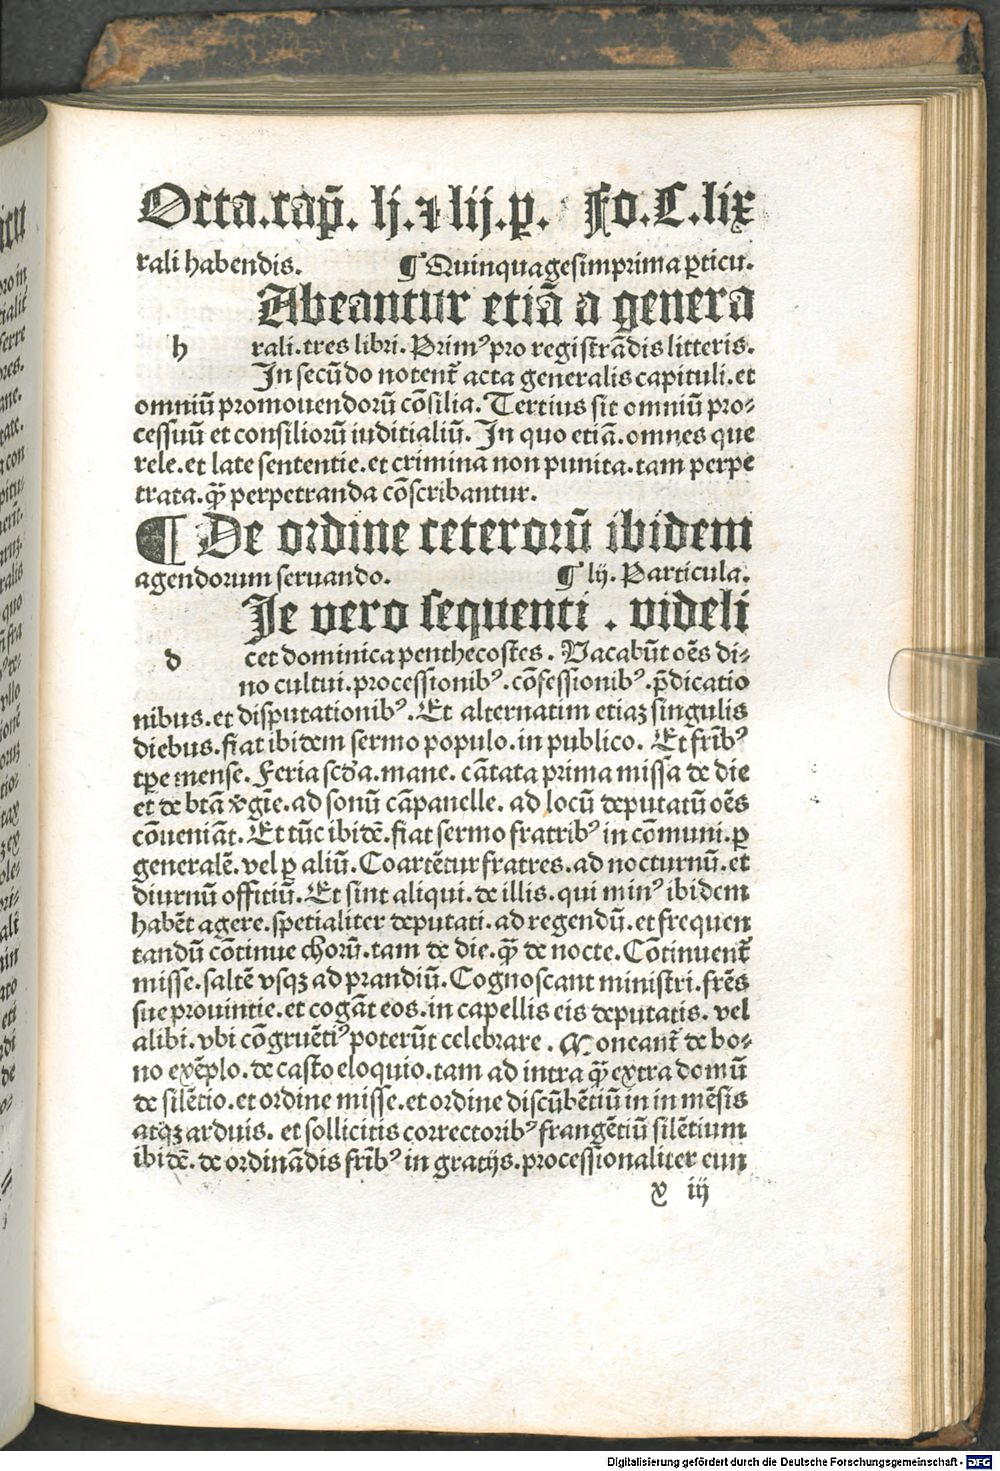 Octa.cap̄. lj. ⁊ lij. ꝑ. Fo. C. lix
rali habendis. ¶ Quinquagesimprima ꝑticu.
Abeantur etiā a genera
h rali. tres libri. Primꝰ pro registrādis litteris.
In secūdo notent᷑ acta generalis capituli. et
omniū promouendorū cōsilia. Tertius sit omniū pro⸗
cessuū et consiliorū iuditialiū. In quo etiā. omnes que
rele. et late sententie. et crimina non punita. tam perpe
trata. qꝫ̄ perpetranda cōscribantur.
¶ De ordine ceterorū ibidem
agendorum seruando. ¶ lij. Particula.
Ie vero sequenti . videli
d cet dominica penthecostes . Vacabūt oēs di⸗
no cultui. processionibꝰ. cōfessionibꝰ. p̄dicatio
nibus. et disputationibꝰ. Et alternatim etiaꝫ singulis
diebus. fiat ibidem sermo populo. in publico. Et fr̄ibꝰ
tꝑe mense. Feria scd̄a. mane. cātata prima missa de die
et de btā v̄gīe. ad sonū cāpanelle. ad locū deputatū oēs
cōueniāt. Et tūc ibidē. fiat sermo fratribꝰ in cōmuni. ꝑ
generalē. vel ꝑ aliū. Coartētur fratres. ad nocturnū. et
diurnū offitiū. Et sint aliqui. de illis. qui minꝰ ibidem
habēt agere. spetialiter deputati. ad regendū. et frequen
tandū cōtinue chorū. tam de die. qꝫ̄ de nocte. Cōtinuent᷑
misse. saltē vsqꝫ ad prandiū. Cognoscant ministri. fr̄es
sue prouintie. et cogāt eos. in capellis eis deputatis. vel
alibi. vbi cōgruētiꝰ poterūt celebrare . Moneant᷑ de bo⸗
no exēplo. de casto eloquio. tam ad intra qꝫ̄ extra domū
de silētio. et ordine misse. et ordine discūbētiū in in mēsis
atqꝫ arduis. et sollicitis correctoribꝰ frangētiū silētium
ibidē. de ordinādis fr̄ibꝰ in gratijs. processionaliter eun
x iij
Digitalisierung gefördert durch die Deutsche Forschungsgemeinschaft - DFG